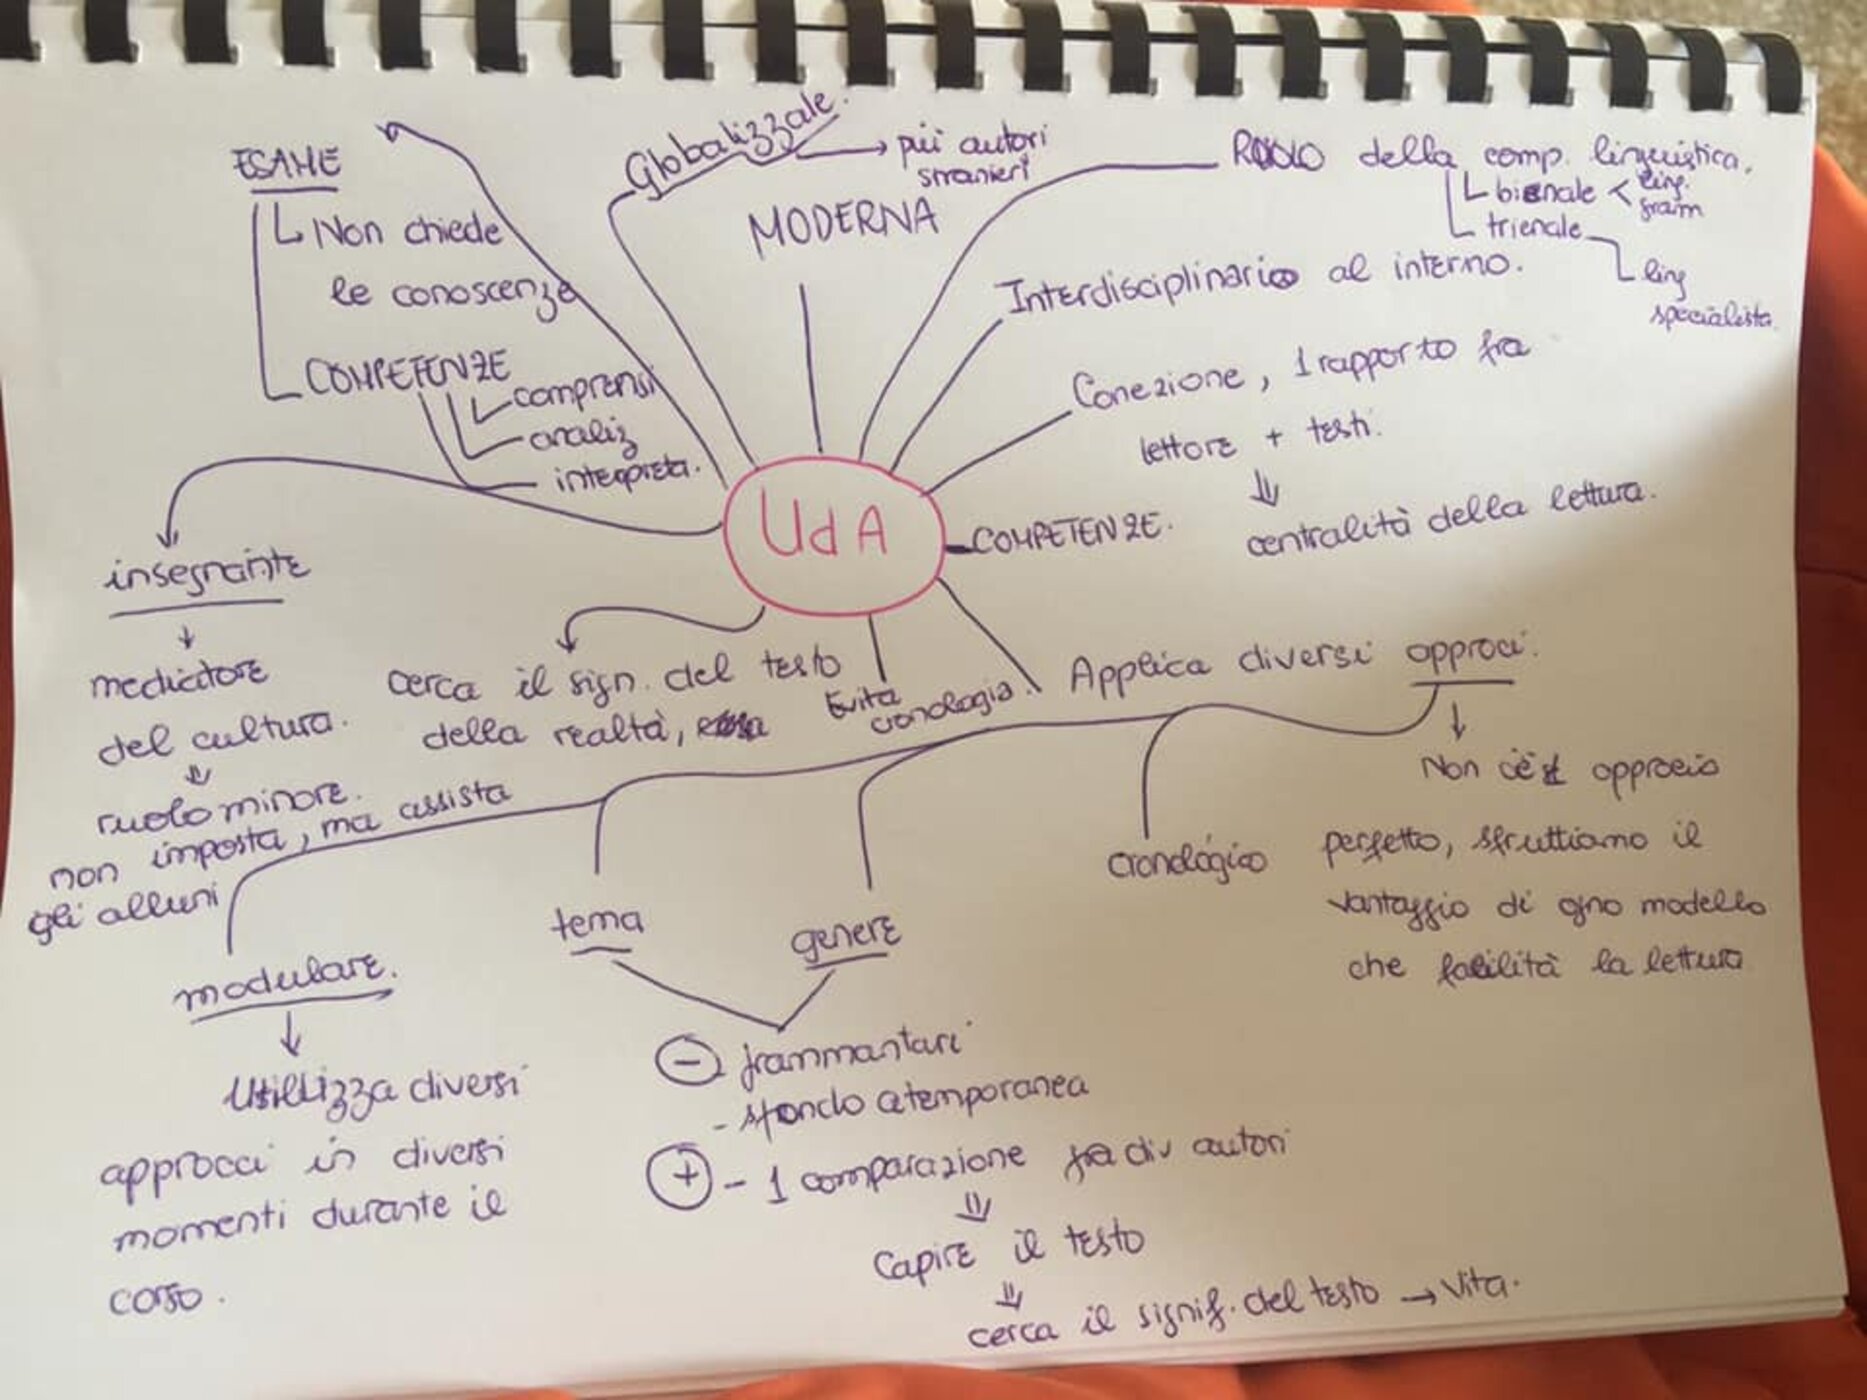 ESAME
Non chiede
le conoscenze
COMPETENZE
comprensi
analiz
interpreta.
Globalizzale.
più autori
stranieri
MODERNA
della comp. linguistica.
bienale
ling.
gram
trienale
ling
specialista.
Interdisciplinario al interno.
Conezione, 1 rapporto fra
lettore + testi.
centralità della lettura.
UdA
COMPETENZE.
insegnante
mediatore
del cultura.
ruolo minore.
non imposta, ma assista
gli alluni
cerca il sign. del testo
della realtà,
Evita
cronologia.
Applica diversi approci.
Non c'è approcio
perfetto, sfruttiamo il
vantaggio di ogno modello
che facilità la lettura
cronológico
tema
genere
modulare.
Utilizza diversi
approcci in diversi
momenti durante il
corso.
- frammantari
- sfondo atemporanea
+ - 1 comparazione fra div autori
Capire il testo
cerca il signif. del testo → Vita.